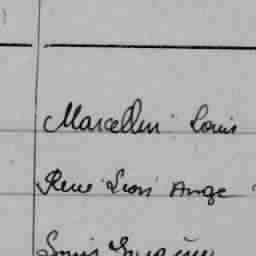 Marcellin Louis
René Léon Ange
Louis Eugène